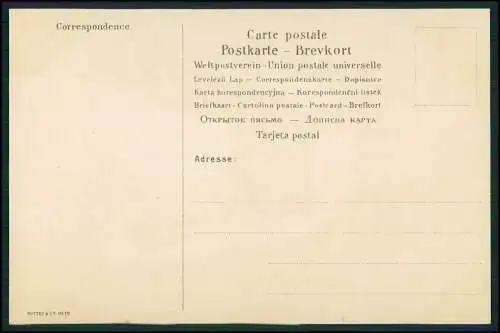 Correspondence
Carte postale
Postkarte – Brevkort
Weltpostverein – Union postale universelle
Levelező Lap – Correspondenzkarte – Dopisnice
Karta korespondencyjna – Korespondenční lístek
Briefkaart – Cartolina postale – Postcard – Brefkort
Открытое письмо — Дописна карта
Tarjeta postal
Adresse: